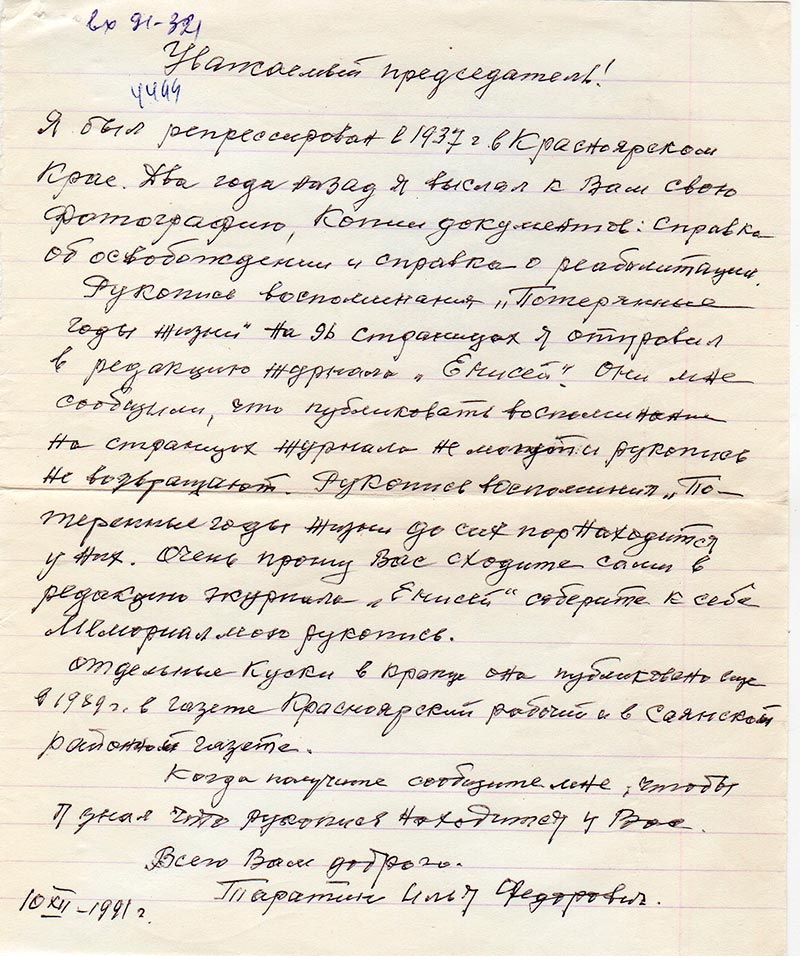 вх 91-321
Уважаемый председатель!
4499
Я был репрессирован в 1937 г. в Красноярском
Крае. Два года назад я выслал к Вам свою
фотографию, Копии документов: справка
об освобождении и справка о реабилитации.
Рукопись воспоминания „Потерянные
годы жизни" на 96 страницах я отправил
в редакцию журнала „Енисей". Они мне
сообщили, что публиковать воспоминание
на страницах журнала не могут и рукопись
не возвращают. Рукопись воспоминия „По-
терянные годы жизни до сих пор находится
у них. Очень прошу Вас сходите сами в
редакцию журнала „Енисей" соберите к себе
Мемориал мою рукопись.
отдельные Куски в она публиковано еще
в 1989 г. в газете Красноярский рабочий и в Саянской
районной газете.
Когда получите сообщите мне, чтобы
я знал что рукопись находится у Вас.
Всего Вам доброго.
Таратин Илья Федорович.
10 XII – 1991 г.